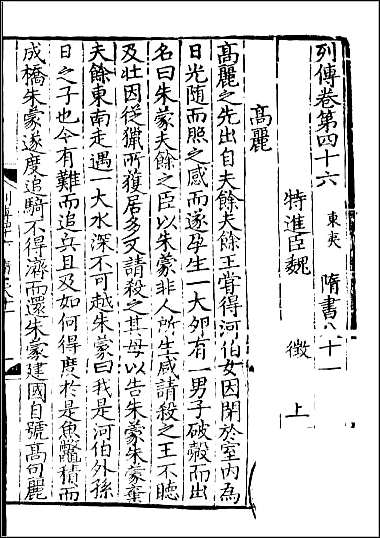 列傳卷第四十六 東夷 隋書八十一
特進臣魏 徵 上
高麗
高麗之先出自夫餘夫餘王嘗得河伯女因閉於室内為
日光随而照之感而遂孕生一大卵有一男子破殻而出
名曰朱蒙夫餘之臣以朱蒙非人所生咸請殺之王不聽
及壮因從獵所獲居多又請殺之其母以告朱蒙朱蒙棄
夫餘東南走遇一大水深不可越朱蒙曰我是河伯外孫
日之子也今有難而追兵且及如何得度於是魚鼈積而
成橋朱蒙遂度追騎不得濟而還朱蒙建國自號髙句麗